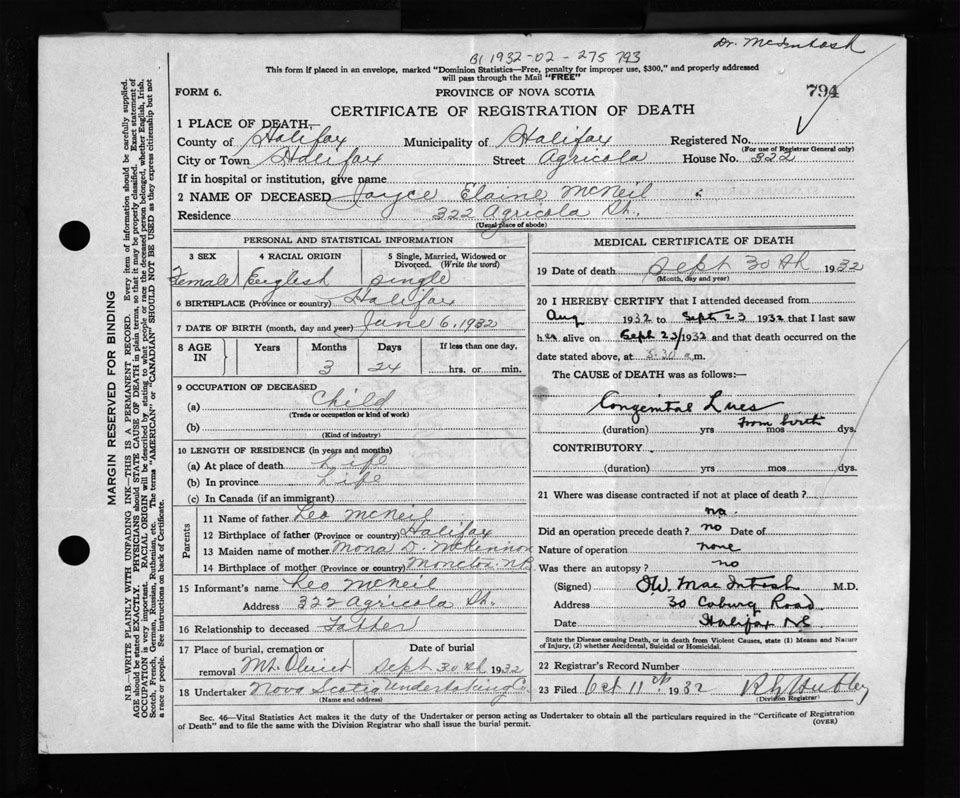 Dr. McIntosh
B1 1932-02-275 793
This form if placed in an envelope, marked "Dominion Statistics—Free, penalty for improper use, $300," and properly addressed
will pass through the Mail "FREE"
FORM 6.
PROVINCE OF NOVA SCOTIA
794
CERTIFICATE OF REGISTRATION OF DEATH
1 PLACE OF DEATH—
County of Halifax Municipality of Halifax Registered No.
(For use of Registrar General only)
City or Town Halifax Street Agricola House No. 322
If in hospital or institution, give name
2 NAME OF DECEASED Joyce Elaine McNeil
Residence 322 Agricola St.,
(Usual place of abode)
PERSONAL AND STATISTICAL INFORMATION
3 SEX 4 RACIAL ORIGIN 5 Single, Married, Widowed or
Divorced. (Write the word)
Female English single
6 BIRTHPLACE (Province or country) Halifax
7 DATE OF BIRTH (month, day and year) June 6, 1932
8 AGE IN Years Months Days If less than one day,
3 24 hrs. or min.
9 OCCUPATION OF DECEASED
(a) Child
(Trade or occupation or kind of work)
(b)
(Kind of industry)
10 LENGTH OF RESIDENCE (in years and months)
(a) At place of death Life
(b) In province Life
(c) In Canada (if an immigrant)
Parents
11 Name of father Leo McNeil
12 Birthplace of father (Province or country) Halifax
13 Maiden name of mother Mona D. McKinnon
14 Birthplace of mother (Province or country) Moncton N.B.
15 Informant's name Leo McNeil
Address 322 Agricola St.
16 Relationship to deceased Father
17 Place of burial, cremation or Date of burial
removal Mt. Olivet Sept 30th 1932
18 Undertaker Nova Scotia Undertaking Co
(Name and address)
MEDICAL CERTIFICATE OF DEATH
19 Date of death Sept 30th 1932
(Month, day and year)
20 I HEREBY CERTIFY that I attended deceased from
Aug 1932 to Sept 23 1932 that I last saw
her alive on Sept 23/1932 and that death occurred on the
date stated above, at 3.30 a.m.
The CAUSE of DEATH was as follows:—
Congenital Lues
from birth
(duration) yrs mos dys.
CONTRIBUTORY
(duration) yrs. mos. dys.
21 Where was disease contracted if not at place of death?
no.
Did an operation precede death? no Date of
Nature of operation none
Was there an autopsy? no
(Signed) OW. MacIntosh M.D.
Address 30 Coburg Road
Date Halifax NS
State the Disease causing Death, or in death from Violent Causes, state (1) Means and Nature
of Injury, (2) whether Accidental, Suicidal or Homicidal.
22 Registrar's Record Number
23 Filed Oct 11th 1932
(Division Registrar)
Sec. 46—Vital Statistics Act makes it the duty of the Undertaker or person acting as Undertaker to obtain all the particulars required in the "Certificate of Registration
of Death" and to file the same with the Division Registrar who shall issue the burial permit.
(OVER)
MARGIN RESERVED FOR BINDING
N.B.—WRITE PLAINLY WITH UNFADING INK—THIS IS A PERMANENT RECORD. Every item of information should be carefully supplied.
AGE should be stated EXACTLY. PHYSICIANS should STATE CAUSE OF DEATH in plain terms, so that it may be properly classified. Exact statement of
OCCUPATION is very important. RACIAL ORIGIN will be described by stating to what people or race the deceased person belonged, whether English, Irish,
Scotch, French, German, Russian, Ruthenian, etc. The terms "AMERICAN" or "CANADIAN" SHOULD NOT BE USED as they express citizenship but not
a race or people. See instructions on back of Certificate.